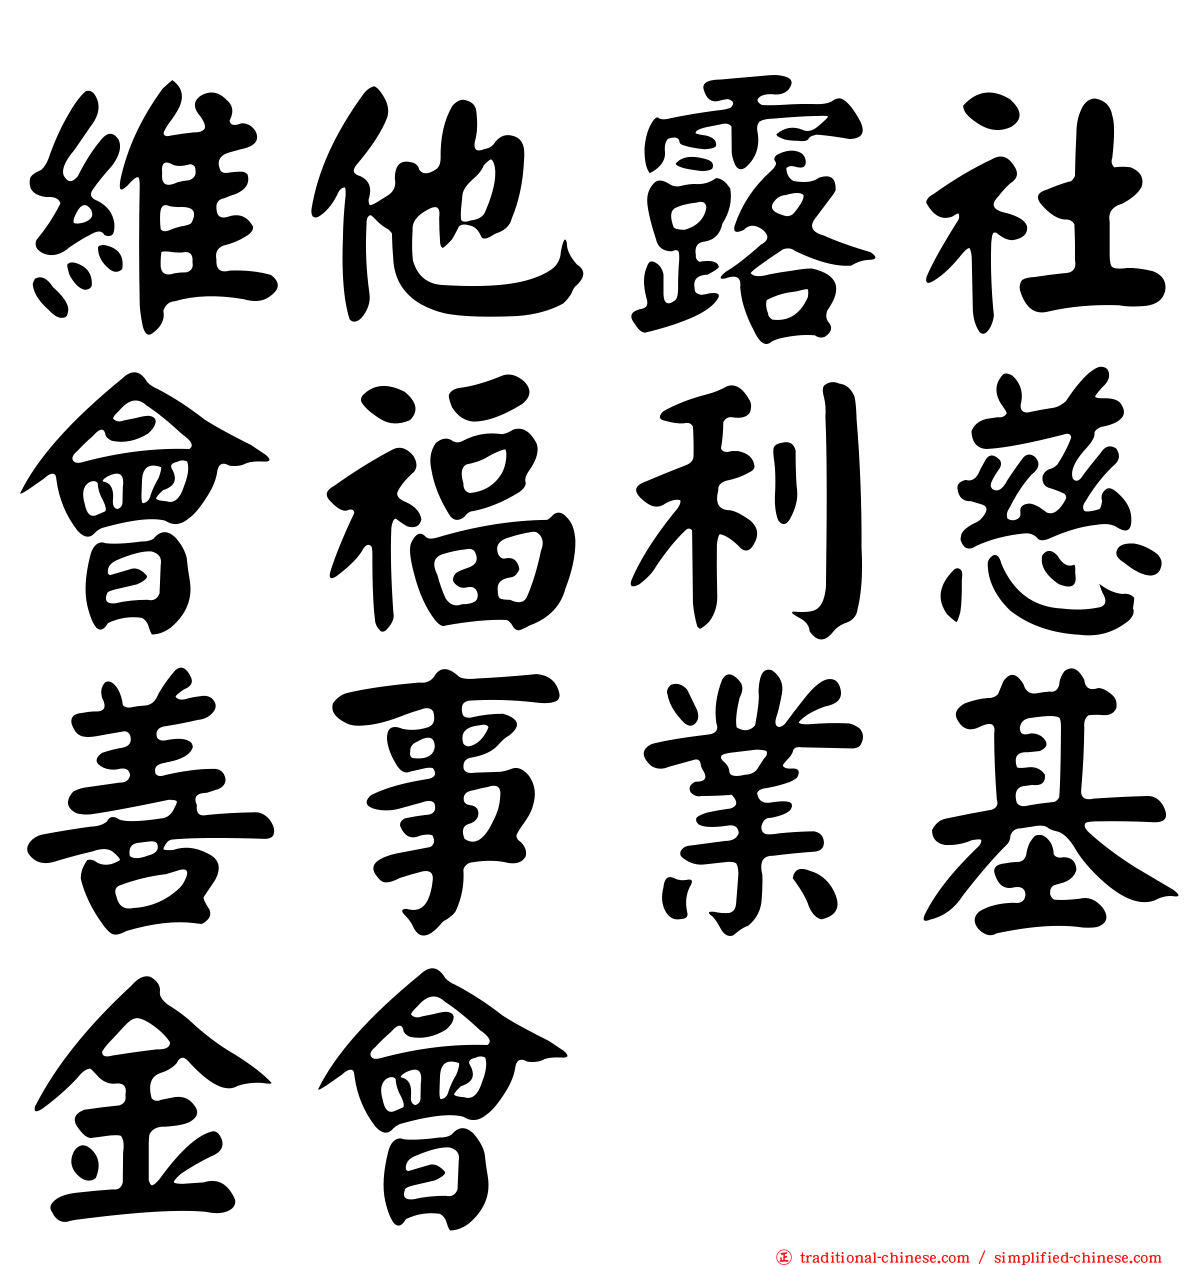 維他露社
會福利慈
善事業基
金會
㊣ traditional-chinese.com / simplified-chinese.com